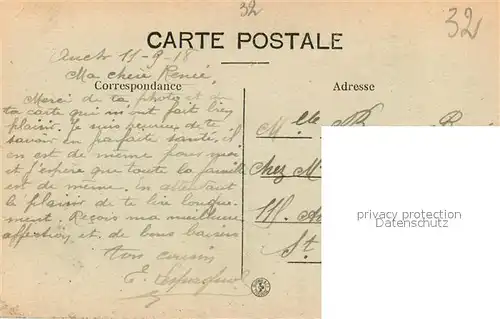 32
32
CARTE POSTALE
Auch 13-9-18
Ma chère Renée,
Correspondance
Adresse
Merci de ta photo et de
ta carte qui m'ont fait bien
plaisir. Je suis heureux de te
savoir en parfaite santé, il
en est de même pour moi
et j'espère que toute la famille
est de même. En attendant
le plaisir de te lire longue
ment. Reçois ma meilleure
affection, et de bons baisers
ton cousin
E.
Mlle R
Chez M
St
privacy protection
Datenschutz